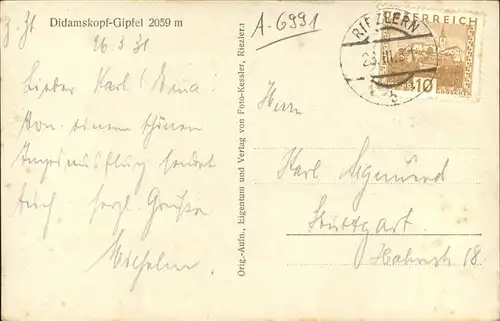 Didamskopf-Gipfel 2059 m
26.3.31
Lieber Karl! Erna!
Von einem schönen
sendet
Euch herzl. Grüße
Wilhelm.
Orig.-Aufn., Eigentum und Verlag von Foto-Kessler, Riezlern
A-6991
RIEZLERN
ÖSTERREICH
10
b
Herrn
Karl
Stuttgart.
18.